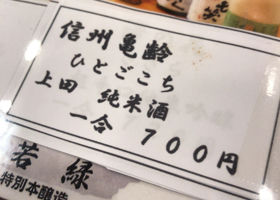 信州亀齢
ひとごこち
上田 純米酒
一合 700円
若緑
特別本醸造